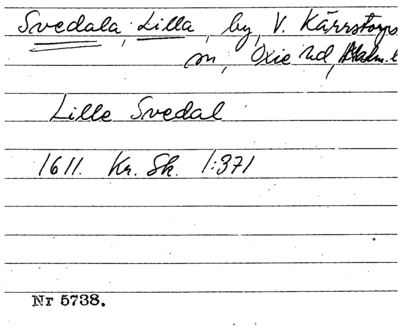 Svedala, Lilla, by, V. Kärrstorps
sn, Oxie hd, Malm. l
Lille Svedal
1611. Kr. Sk. 1:371
Nr 5738.